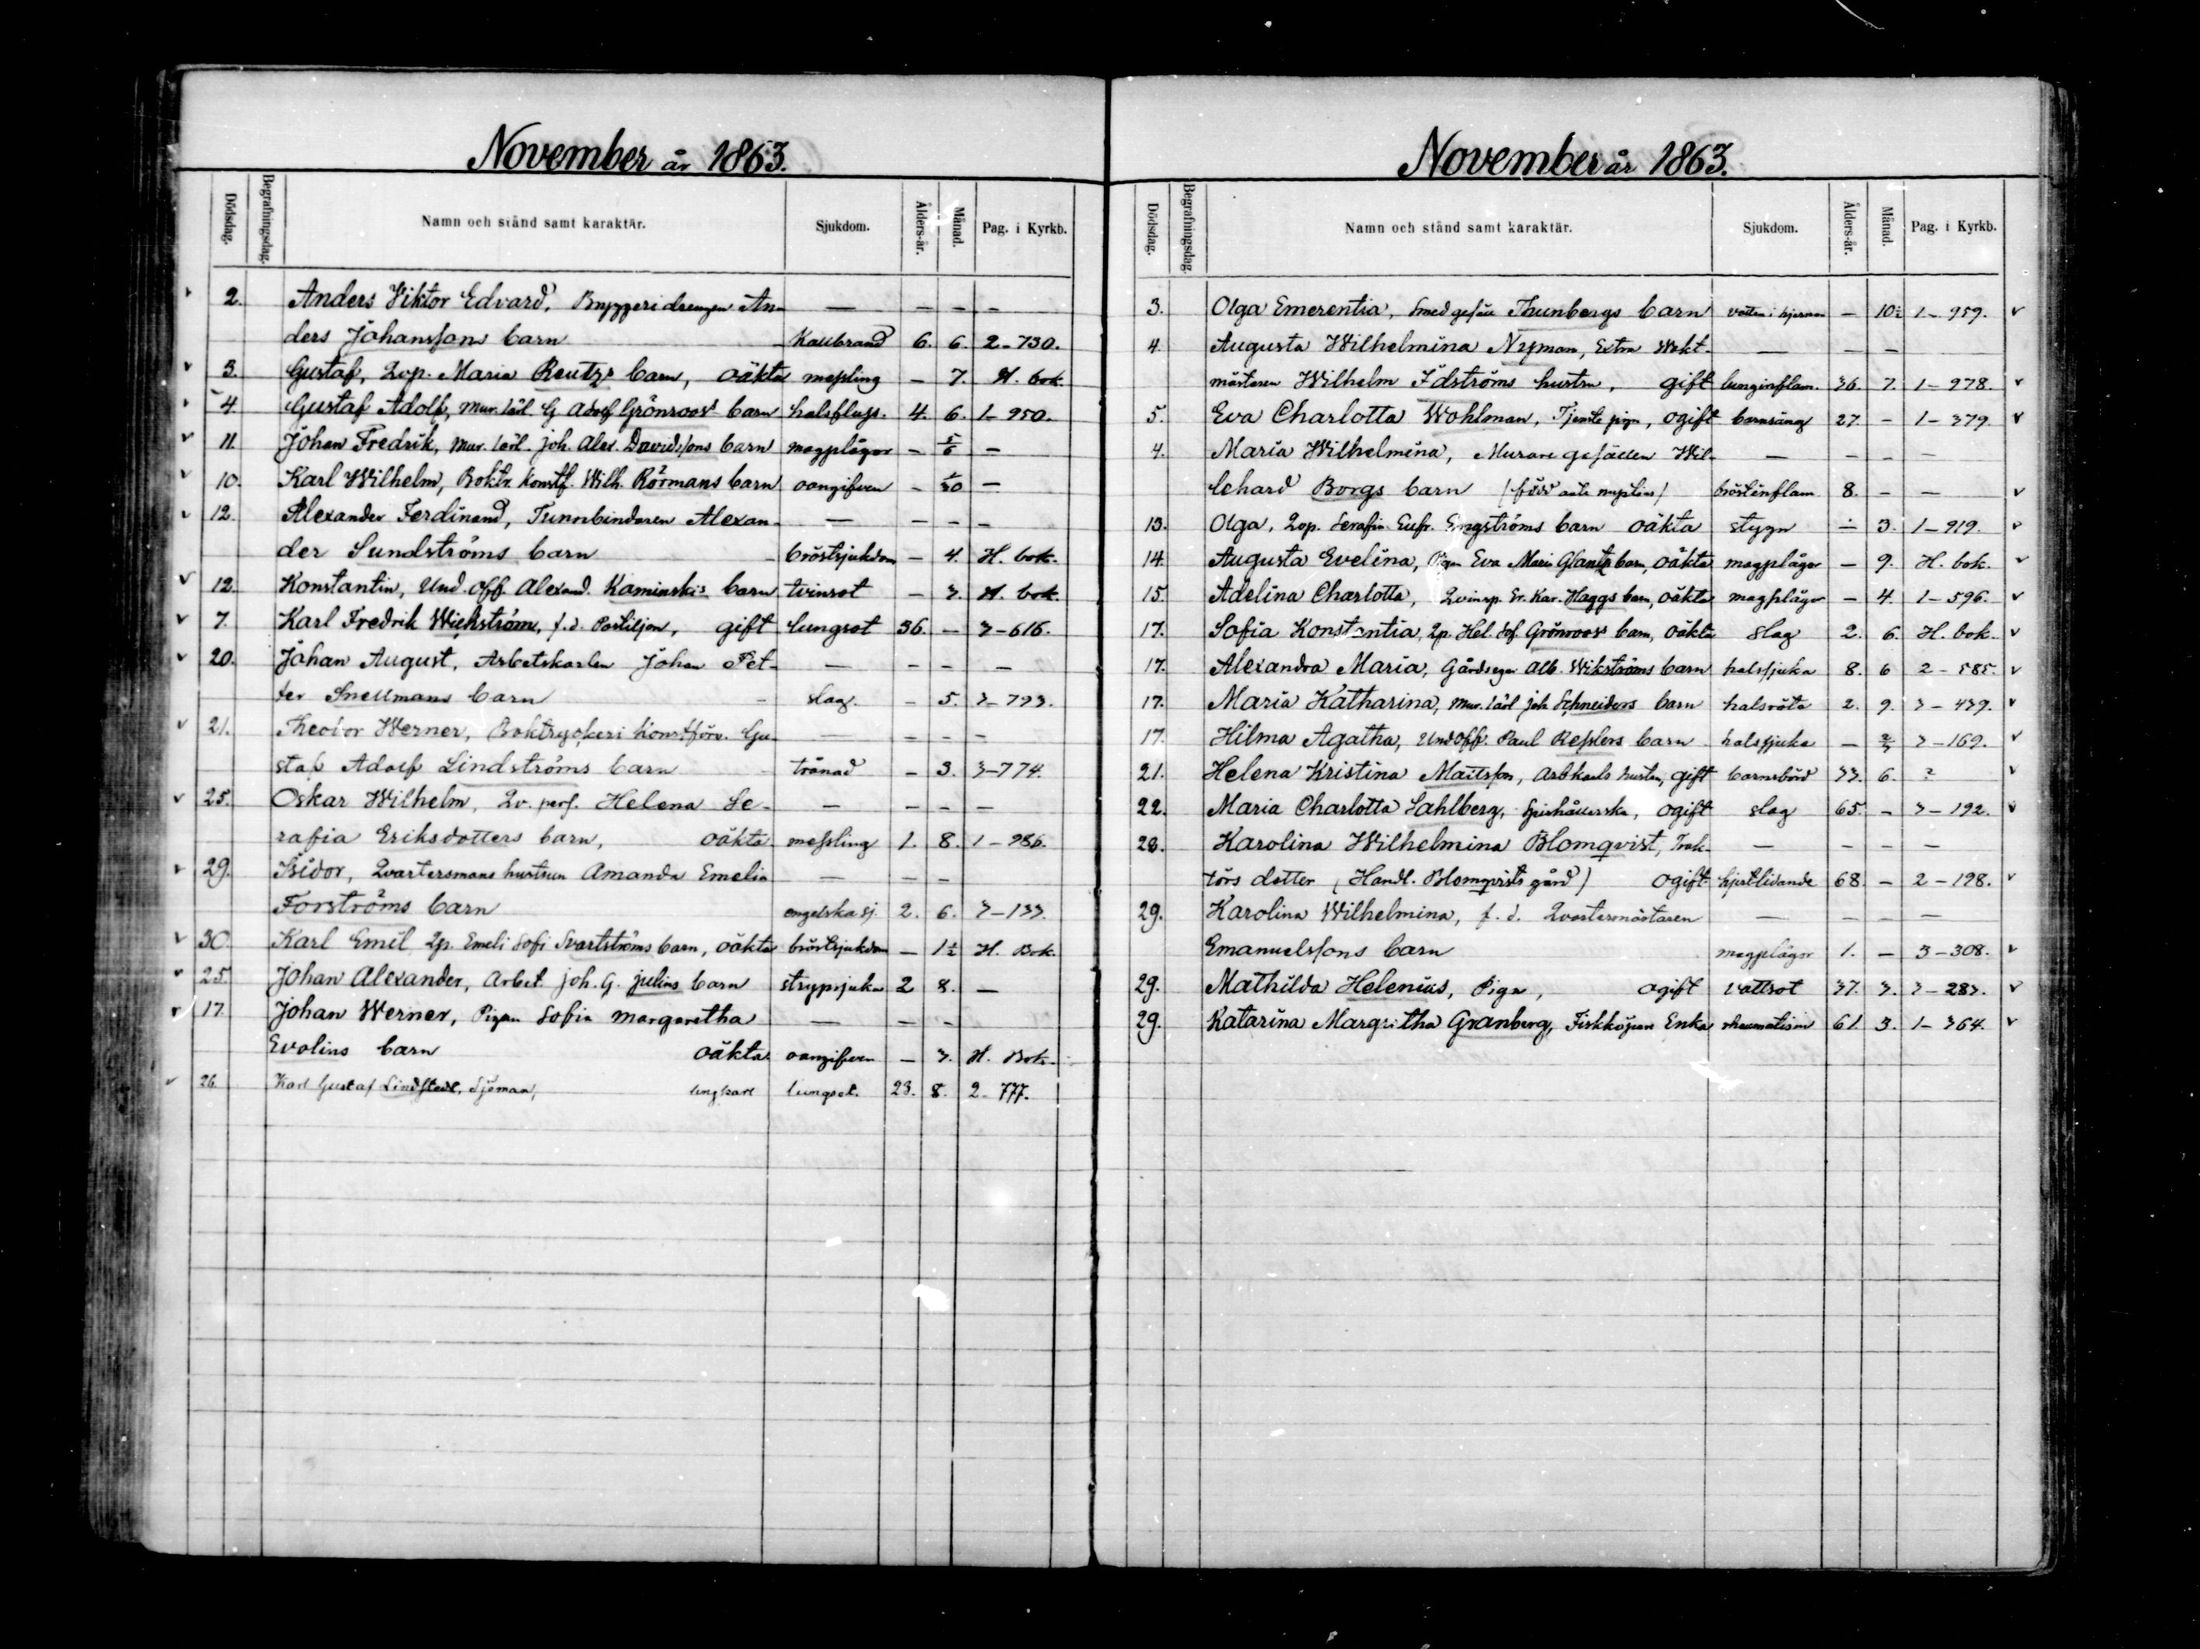 November år 1863.
Dödsdag. Begrafningsdag. Namn och stånd samt karaktär. Sjukdom. Ålders-år. Månad. Pag. i Kyrkb.
2. Anders Viktor Edvard, Bryggeridrengen An- — — — —
ders Johanssons barn Kallbrand 6. 6. 2-730.
3. Gustaf, Qvp. Maria Reutz's barn, oäkta messling — 7. H. bok.
4. Gustaf Adolf, Mur. lärl. G Adolf Grönroos's barn halsflugs. 4. 6. 1-950.
11. Johan Fredrik, Mur. lärl. Joh. Alex. Davidssons barn magplågor — 5/6 —
10. Karl Wilhelm, Boktr. Konstf. Wilh. Rörmans barn oangifven — 1/30 —
12. Alexander Ferdinand, Tunnbindaren Alexan- — — — —
der Sundströms barn bröstsjukdom — 4. H. bok.
12. Konstantin, Und. Off. Alexand. Kaminskis barn tvinsot — 3. H. bok.
7. Karl Fredrik Wickström, f.d. Postiljon, gift lungsot 36. — 3-616.
20. Johan August, Arbetskarlen Johan Pet- — — — —
ter Snellmans barn slag. — 5. 3-793.
21. Theodor Werner, Boktryckeri konstförv. Gu- — — — —
staf Adolf Lindströms barn trånad — 3. 3-774.
25. Oskar Wilhelm, Qv. pers. Helena Se- — — — —
rafia Eriksdotters barn, oäkta messling 1. 8. 1-986.
29. Isidor, Qvartersmans hustrun Amanda Emelia — — —
Forströms barn engelska sj. 2. 6. 3-133.
30. Karl Emil Qp. Emeli Sofi Svartströms barn, oäkta bröstsjukdom — 1½ H. Bok.
25. Johan Alexander, Arbet. Joh. G. Julins barn strypsjuka 2 8. —
17. Johan Werner, Pigan Sofia Margaretha — — —
Evolins barn oäkta oangifven — 3. H. Bok.
26. Karl Gustaf Lindstedt, Sjöman, ungkarl lungsot. 23. 8. 2-777.
November år 1863.
Dödsdag. Begrafningsdag. Namn och stånd samt karaktär. Sjukdom. Ålders-år. Månad. Pag. i Kyrkb.
3. Olga Emerentia, Smedgesäll Thunbergs barn vatten i hjernan — 10½ 1-959.
4. Augusta Wilhelmina Nyman, Extra Wakt- — — —
mästaren Wilhelm Idströms hustru, gift lunginflam. 36. 7. 1-978.
5. Eva Charlotta Wohlman, Tjenste piga, ogift barnsäng 27. — 1-379.
4. Maria Wilhelmina, Murare gesällen Wil- — — — —
lehard Borgs barn (född ante nuptias) bröstinflam 8. — —
13. Olga, Qvp. Serafia Eufr. Engströms barn oäkta stygn — 3. 1-919.
14. Augusta Evelina, Pigan Eva Maria Glantz barn, oäkta magplågor — 9. H. bok.
15. Adelina Charlotta, Qvinsp. Er. Kar. Haggs barn, oäkta magplågor — 4. 1-596.
17. Sofia Konstantia, Qp. Hel. Sof. Grönroos's barn, oäkta slag 2. 6. H. bok.
17. Alexandra Maria, Gårdsegar Alb. Wikströms barn halssjuka 8. 6 2-585.
17. Maria Katharina, Mur. lärl Joh Schneiders barn halsröta 2. 9. 3-439.
17. Hilma Agatha, Undoff. Paul Resslers barn halssjuka — 2/3 3-169.
21. Helena Kristina Mattsson, Arbkarls hustru, gift barnsbörd 33. 6. ?
22. Maria Charlotta Sahlberg, Spishållerska, ogift slag 65. — 3-192.
28. Karolina Wilhelmina Blomqvist, Trak- — — — —
törs dotter (Handl. Blomqvists gård) ogift hjertlidande 68. — 2-198.
29. Karolina Wilhelmina, f. d. Qvartersmästaren — — — —
Emanuelssons barn magplågor 1. — 3-308.
29. Mathilda Helenius, Piga, ogift vattsot 37. 3. 3-283.
29. Katarina Margretha Granberg, Fiskköpare Enka rheumatism 61. 3. 1-364.